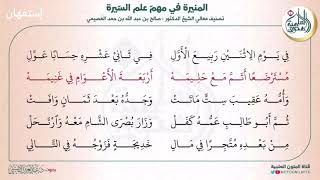 استفهان
المنيرة في مهم علم السيرة
تصنيف معالي الشيخ الدكتور : صالح بن عبد الله بن حمد العصيمي
فِي يَوْمِ الِاثْنَيْنِ رَبِيعِ الْأَوَّلِ فِي ثَانِيْ عَشْرِهِ حِسَابًا عَوِّلِ
مُسْتَرْضَعًا أَتَمَّ مَعْ حَلِيمَهْ أَرْبَعَةَ الْأَعْوَامِ فِي غَنِيمَهْ
وَأُمُّهُ عُقَيْبَ سِتٍّ مَاتَتْ وَجَدُّهُ بَعْدَ ثَمَانٍ وَافَتْ
ثُمَّ أَبُو طَالِبٍ عَمُّهُ كَفَلْ وَزَارَ بُصْرَى الشَّامِ مَعْهُ وَارْتَحَلْ
مِنْ بَعْدِهِ مُتَّجِرًا فِي مَالِ خَدِيجَةٍ فَزُوِّجَهْ فِي التَّالِي
قناة المتون العلمية